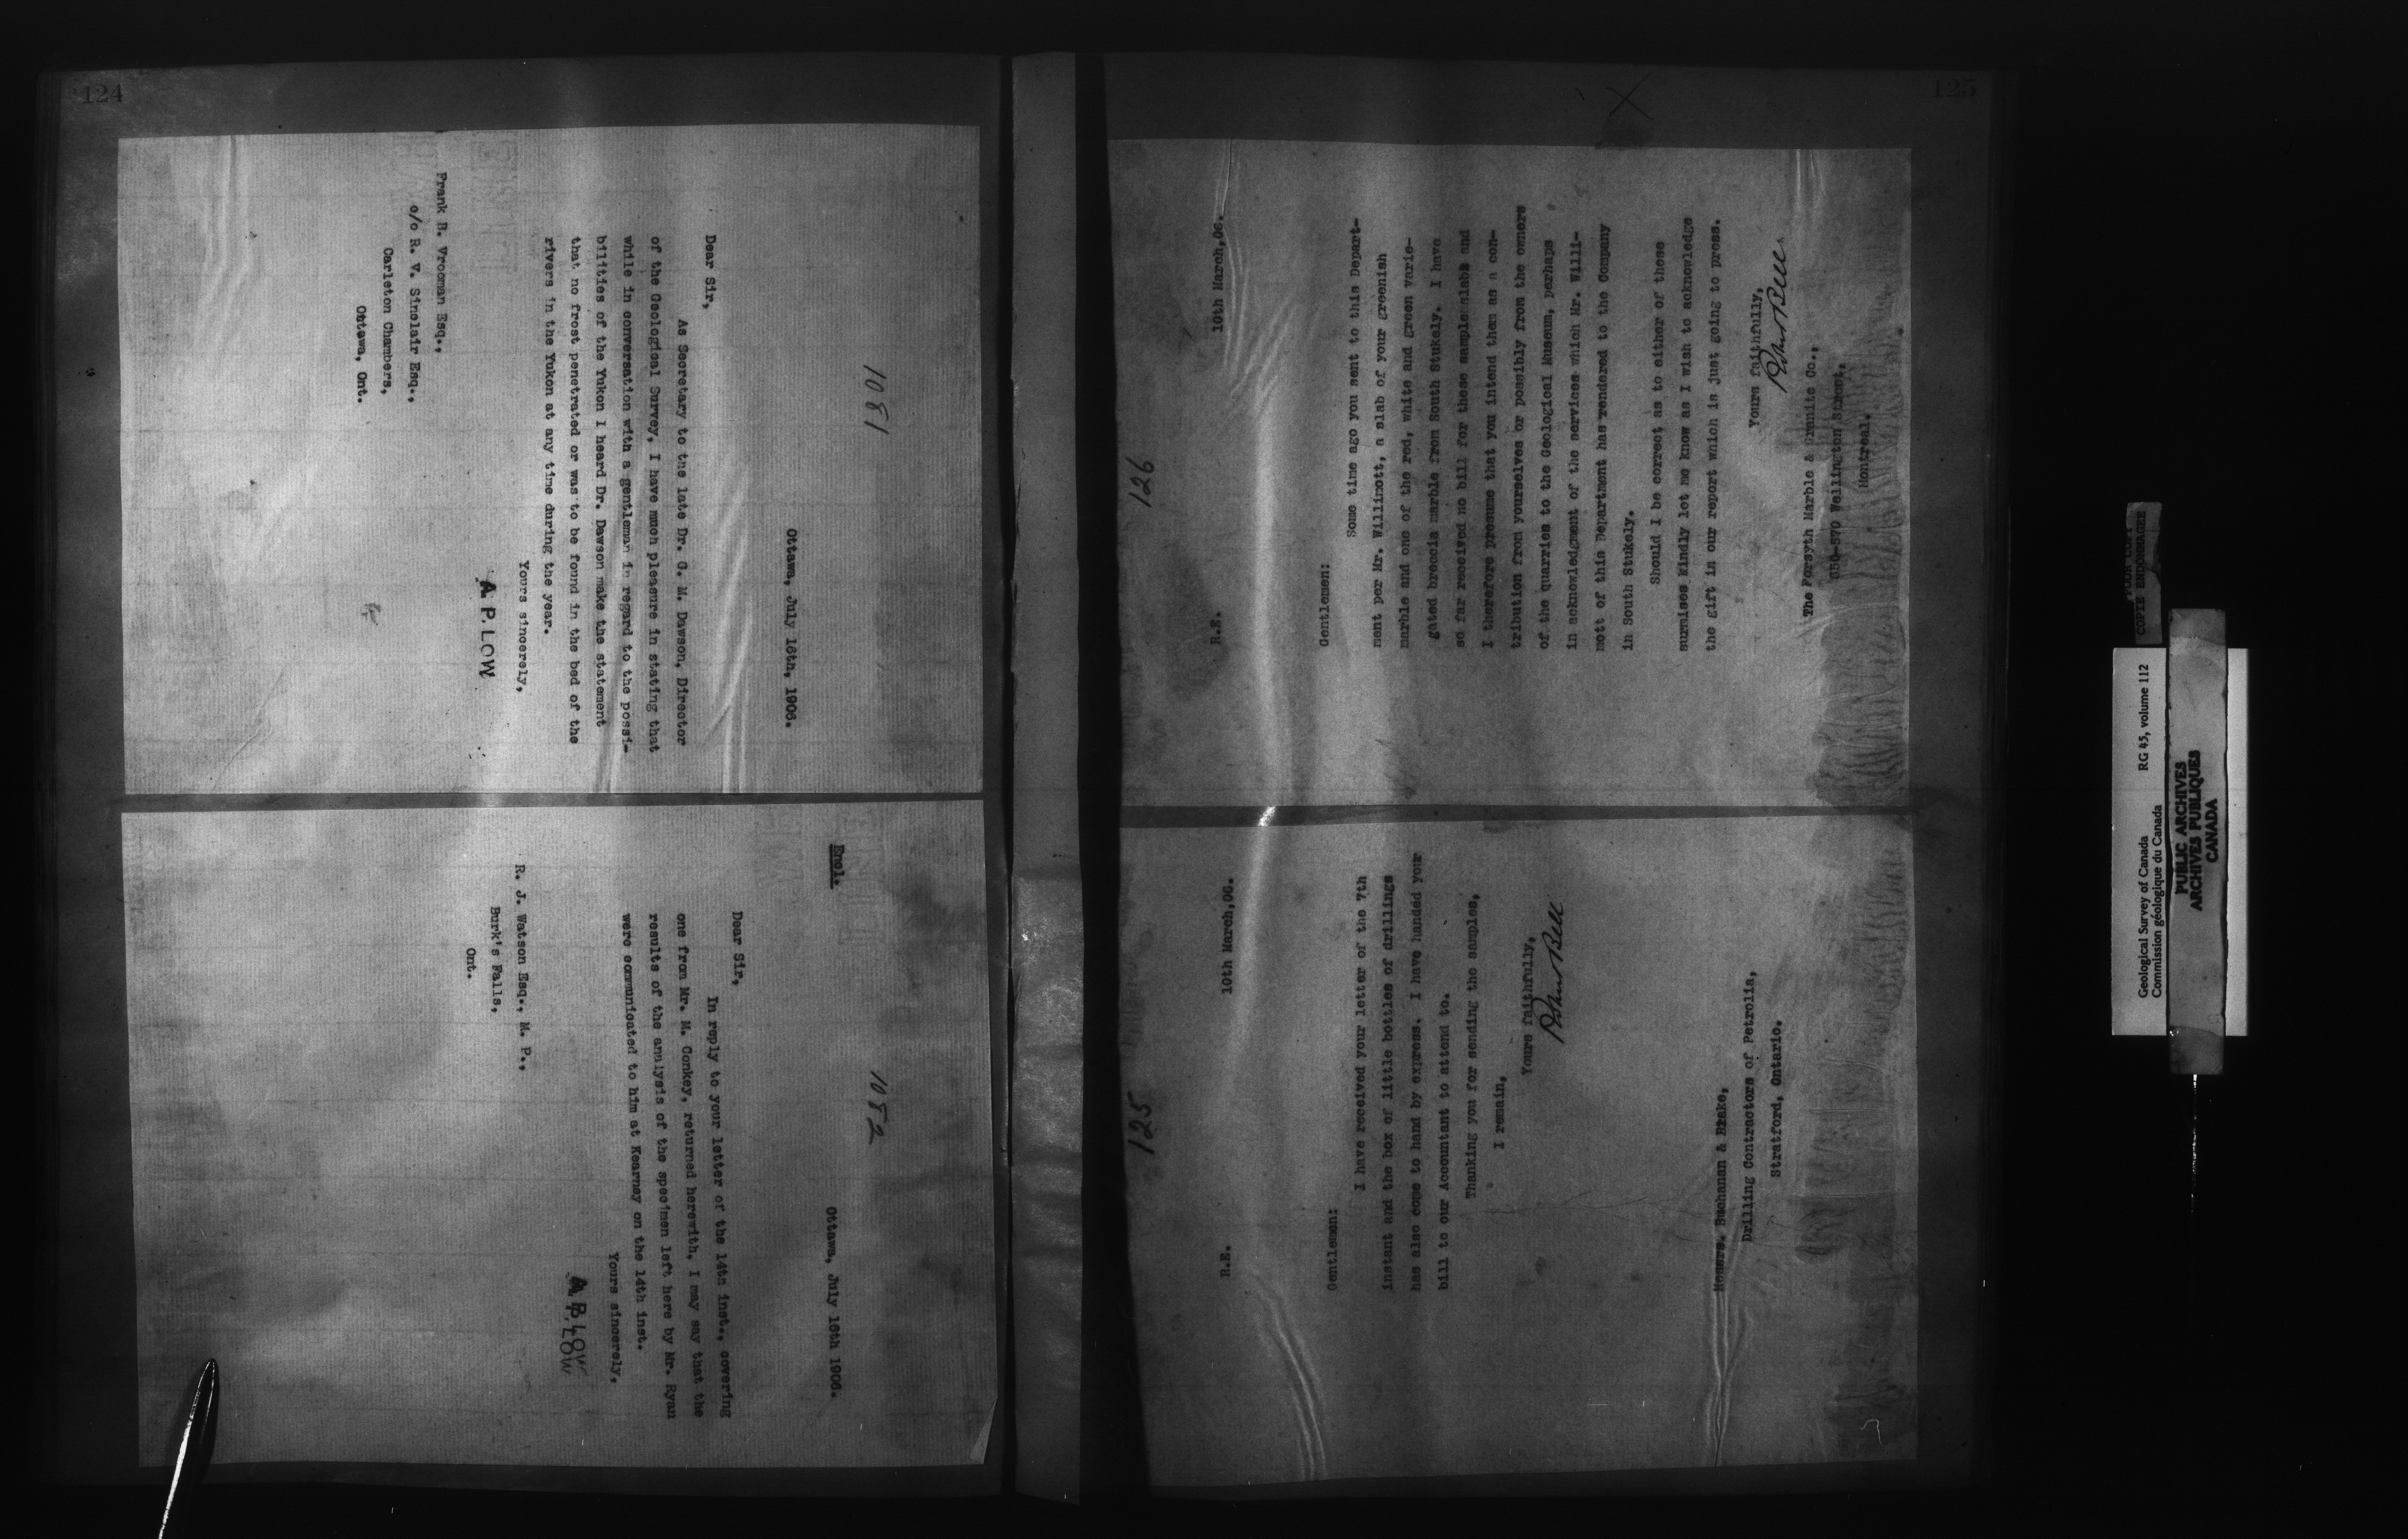 124
1081
Ottawa, July 16th, 1906.
Dear Sir,
As Secretary to the late Dr. G. M. Dawson, Director
of the Geological Survey, I have much pleasure in stating that
while in conversation with a gentleman in regard to the possi-
bilities of the Yukon I heard Dr. Dawson make the statement
that no frost penetrated or was to be found in the bed of the
rivers in the Yukon at any time during the year.
Yours sincerely,
A. P. LOW
Frank B. Vrooman Esq.,
c/o R. V. Sinclair Esq.,
Carleton Chambers,
Ottawa, Ont.
1082
Ottawa, July 16th 1906.
Encl.
Dear Sir,
In reply to your letter of the 14th inst., covering
one from Mr. M. Conkey, returned herewith, I may say that the
results of the analysis of the specimen left here by Mr. Ryan
were communicated to him at Kearney on the 14th inst.
Yours sincerely,
A. P. LOW
R. J. Watson Esq., M. P.,
Burk's Falls,
Ont.
125
126
R.E.
10th March,06.
Gentlemen:
Some time ago you sent to this Depart-
ment per Mr. Willimott, a slab of your greenish
marble and one of the red, white and green varie-
gated breccia marble from South Stukely. I have
so far received no bill for these sample slabs and
I therefore presume that you intend them as a con-
tribution from yourselves or possibly from the owners
of the quarries to the Geological Museum, perhaps
in acknowledgment of the services which Mr. Willi-
mott of this Department has rendered to the Company
in South Stukely.
Should I be correct as to either of these
surmises kindly let me know as I wish to acknowledge
the gift in our report which is just going to press.
Yours faithfully,
Robert Bell
The Forsyth Marble & Granite Co.,
550-570 Wellington Street,
Montreal.
125
R.E.
10th March,06.
Gentlemen:
I have received your letter of the 7th
instant and the box of little bottles of drillings
has also come to hand by express. I have handed your
bill to our Accountant to attend to.
Thanking you for sending the samples,
I remain,
Yours faithfully,
Robert Bell
Messrs. Buchanan & Brake,
Drilling Contractors of Petrolia,
Stratford, Ontario.
COPIE ENDOMMAGEE
Geological Survey of Canada RG 45, volume 112
Commission géologique du Canada
PUBLIC ARCHIVES
ARCHIVES PUBLIQUES
CANADA